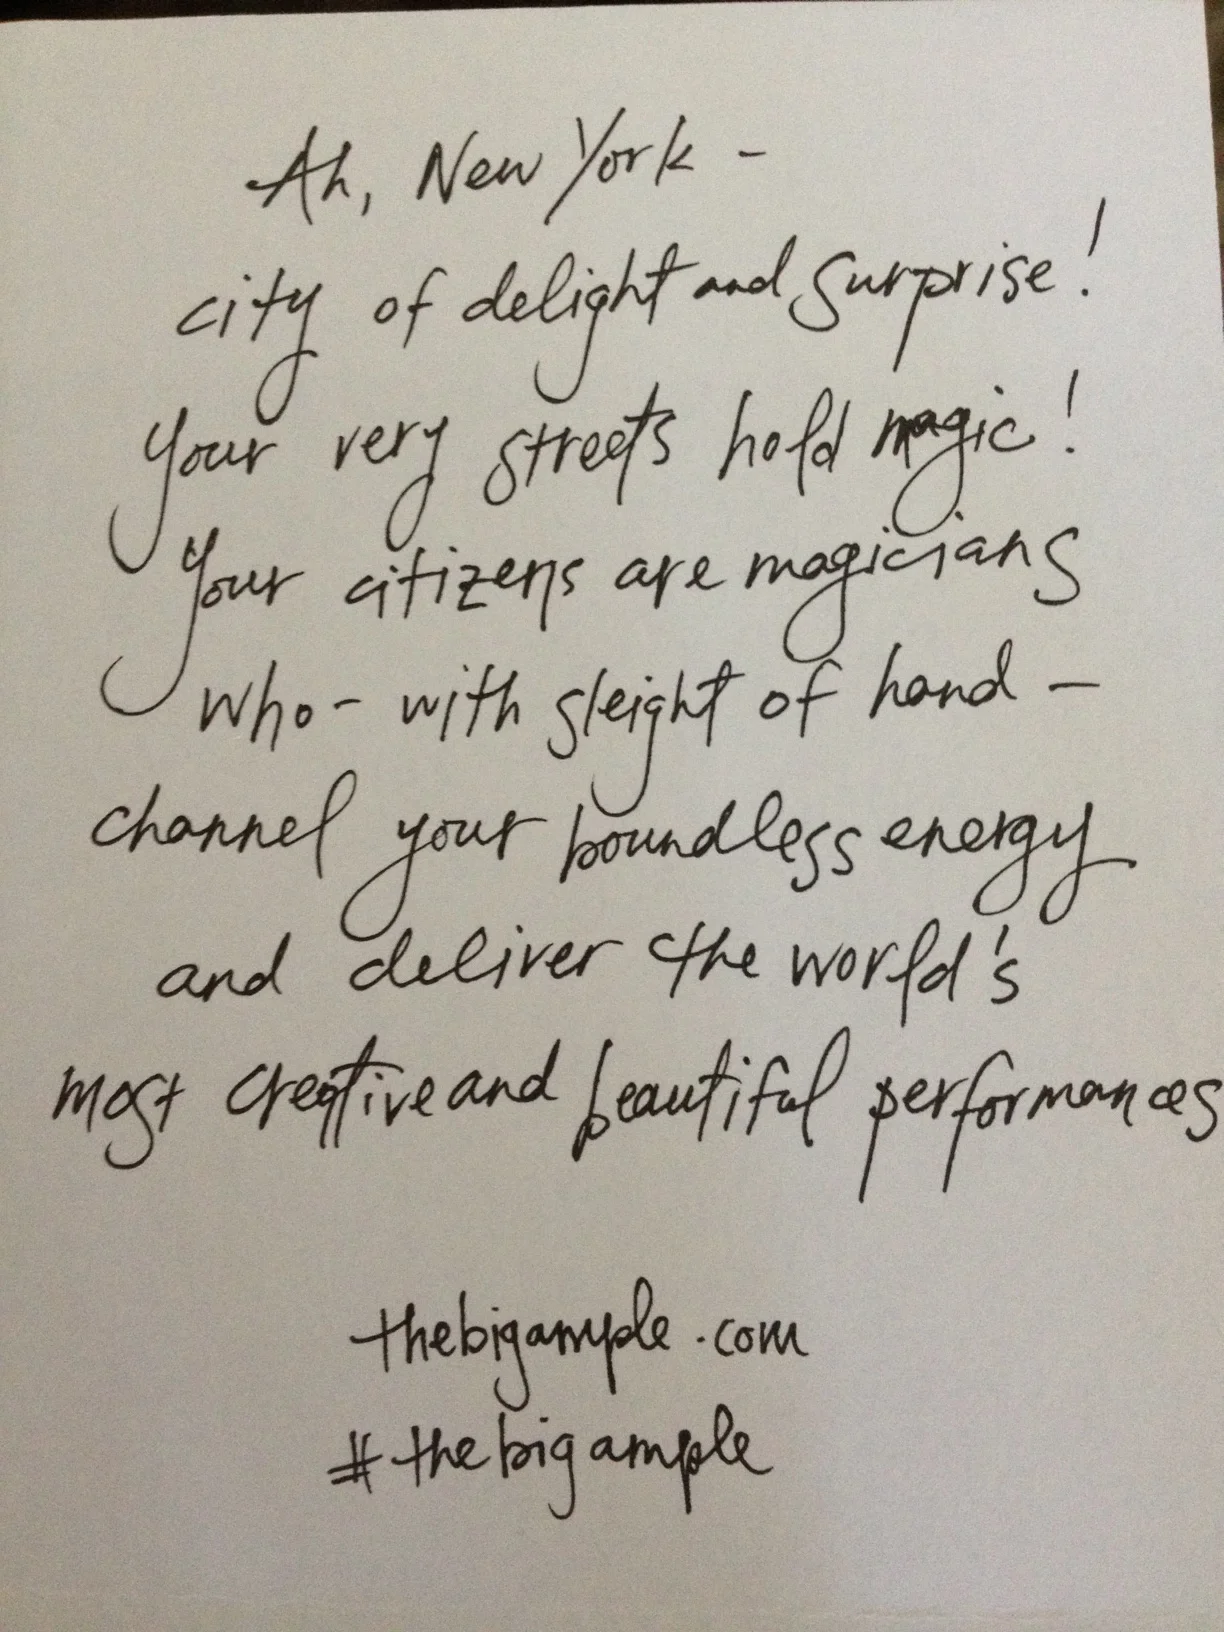 Ah, New York -
city of delight and surprise!
Your very streets hold magic!
Your citizens are magicians
who - with sleight of hand -
channel your boundless energy
and deliver the world's
most creative and beautiful performances
thebigample.com
#thebigample